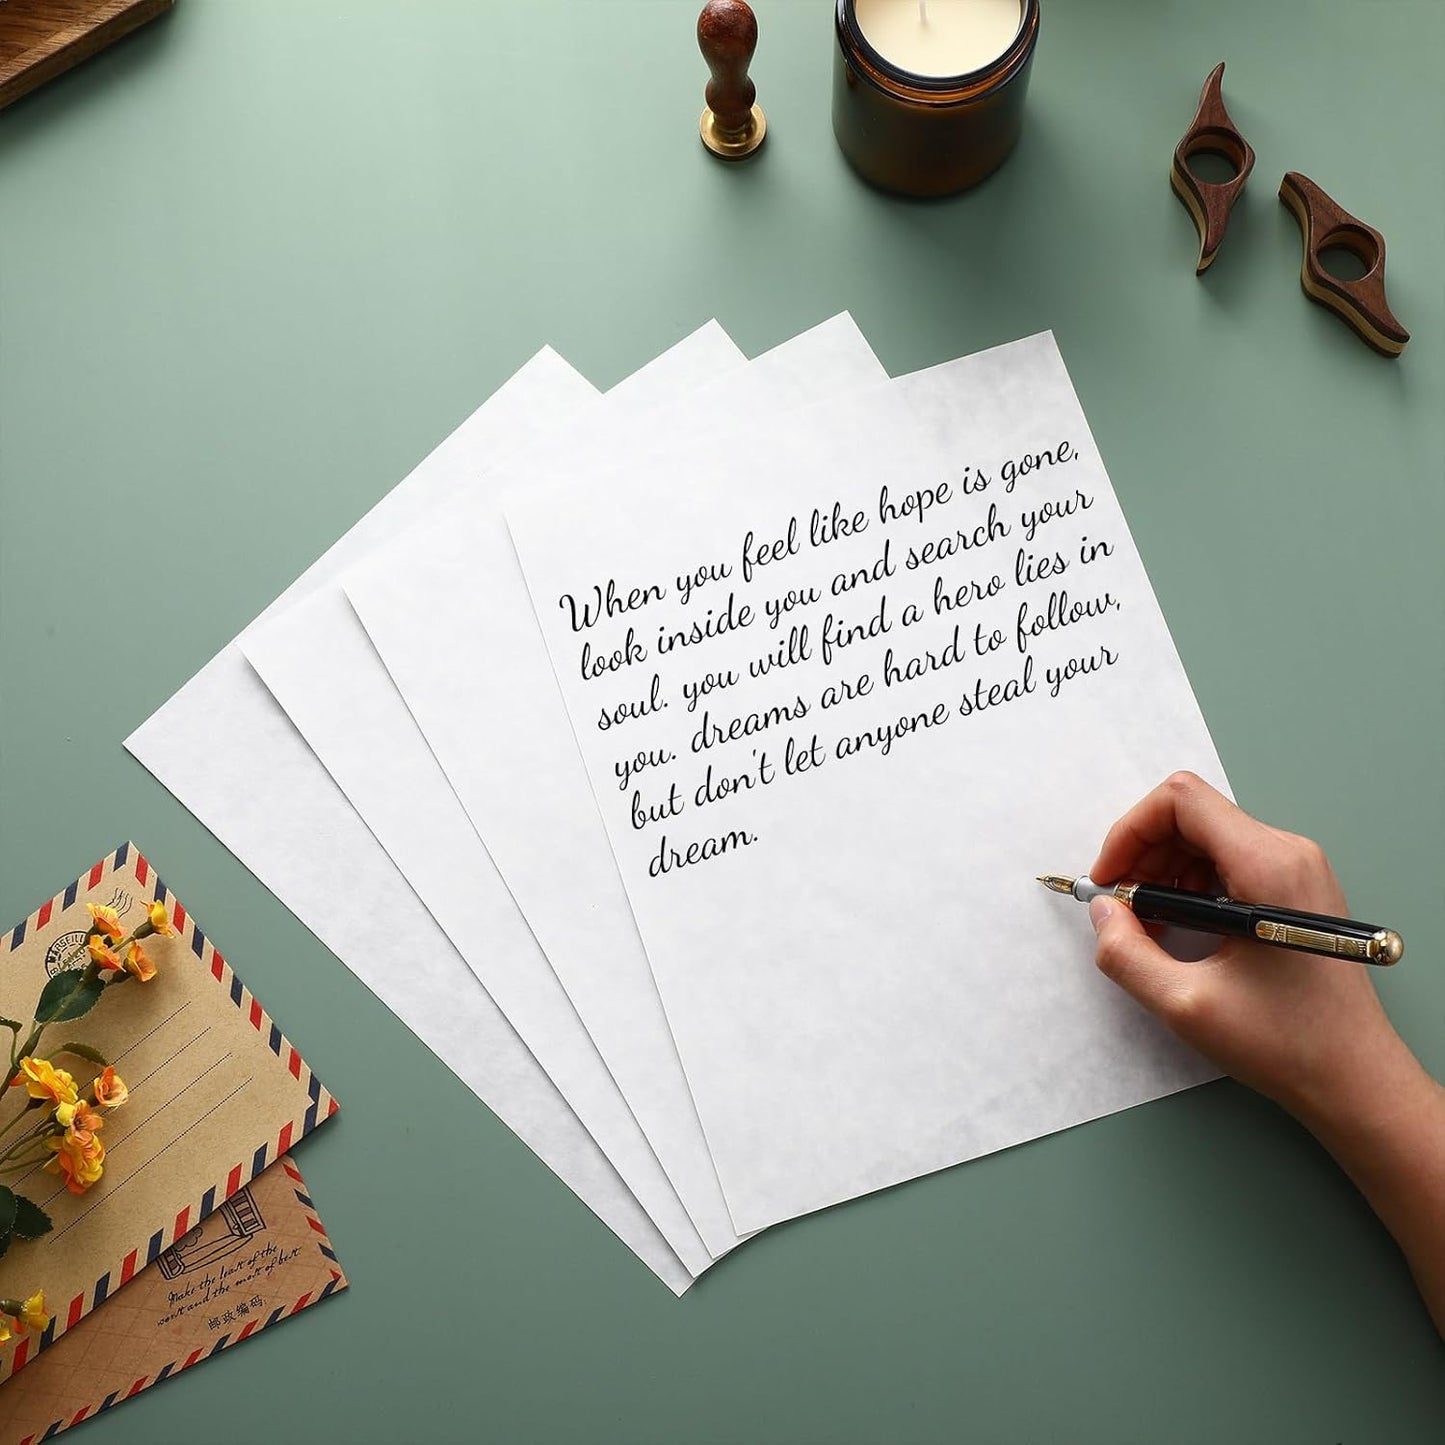 When you feel like hope is gone,
look inside you and search your
soul. you will find a hero lies in
you. dreams are hard to follow,
but don't let anyone steal your
dream.
Make the least of the
worst and the most of best
邮政编码: